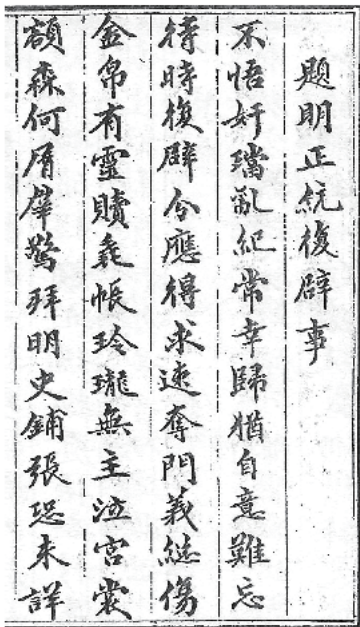 題明正統復辟事
不悟奸璫亂紀常幸歸猶自意難忘
待時復辟分應得求速奪門義總傷
金帛有靈贖毳帳玲瓏無主泣宮裳
額森何屑羣驚拜明史鋪張恐未詳